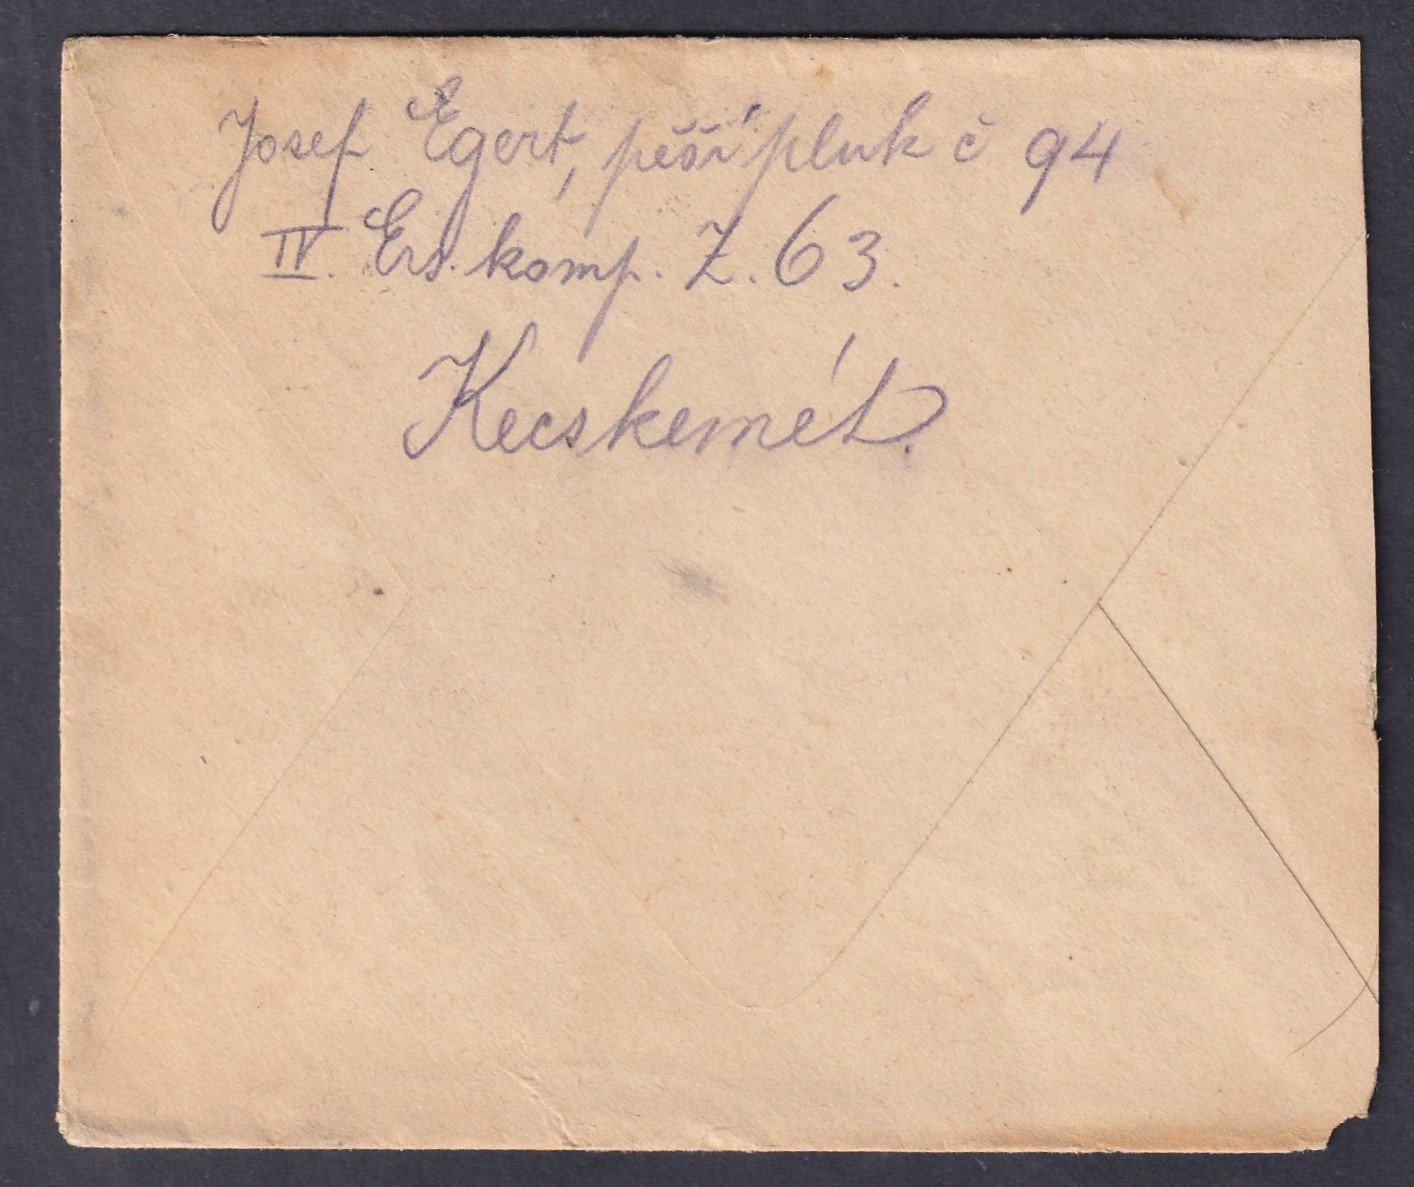 Josef Egert, pěší pluk č 94
IV. Ers. komp. Z. 63.
Kecskemét.